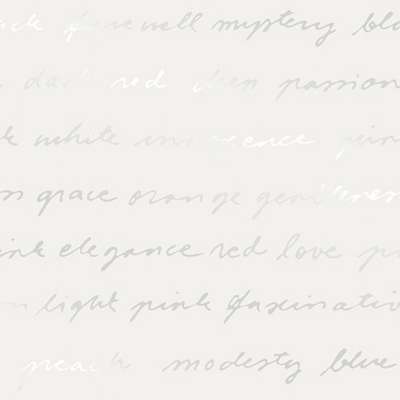 farewell mystery
dark red deep passion
white innocence
grace orange gentleness
pink elegance red love
light pink fascinatio
peach modesty blue